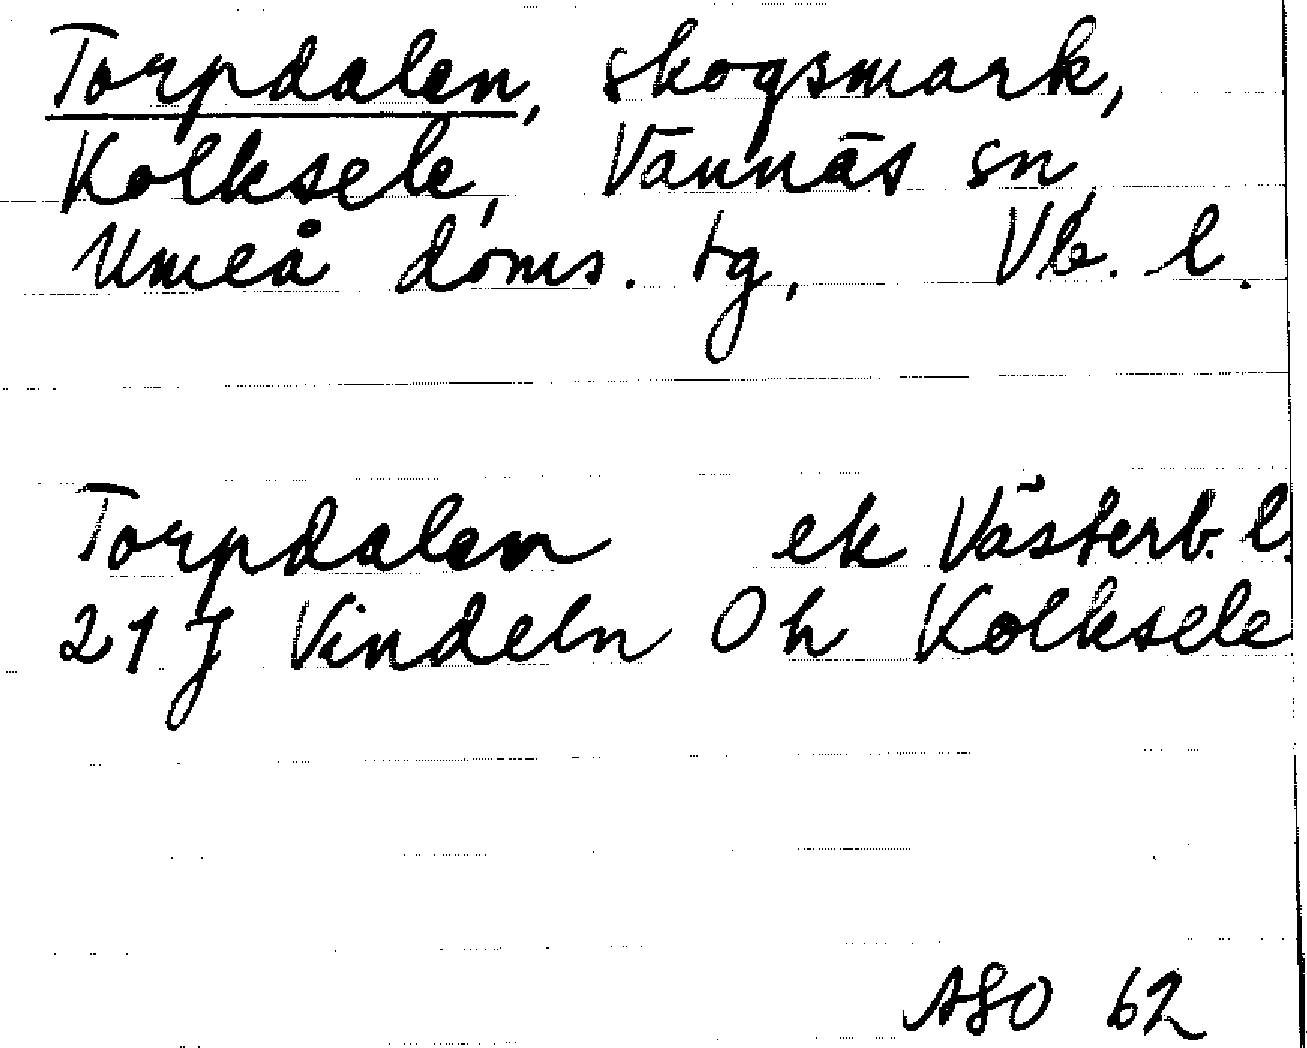 Torpdalen, skogsmark,
Kolksele, Vännäs sn,
Umeå doms. tg, Vb. l.
Torpdalen ek Västerb. l.
21 J Vindeln 0 h Kolksele
ASO 62